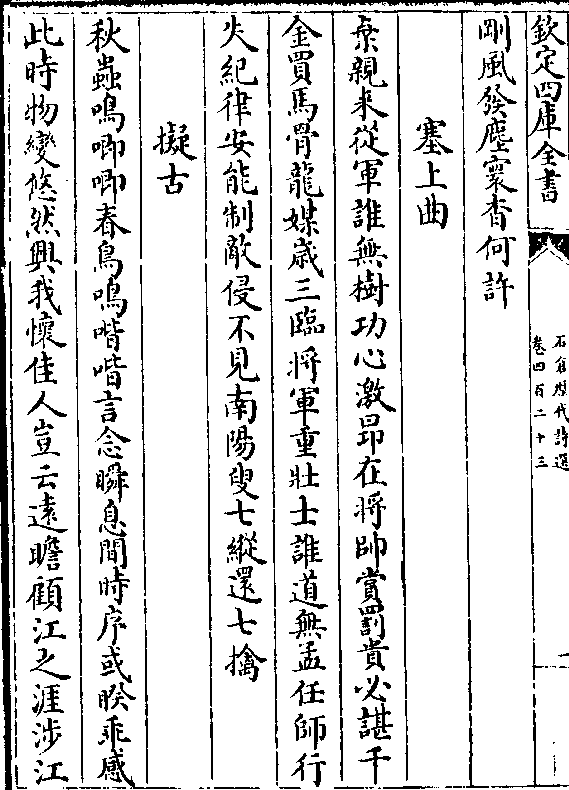 欽定四庫全書
石倉歷代詩選
卷四百二十三
剛風發塵寰杳何許
塞上曲
棄親来從軍誰無樹功心激昂在將帥賞罰貴必諶千
金買馬骨龍媒歳三臨將軍重壯士誰道無孟任師行
失紀律安能制敵侵不見南陽叟七縱還七擒
擬古
秋蟲鳴唧唧春鳥鳴喈喈言念瞬息間時序或睽乖感
此時物變悠然興我懷佳人豈云遠瞻顧江之涯涉江